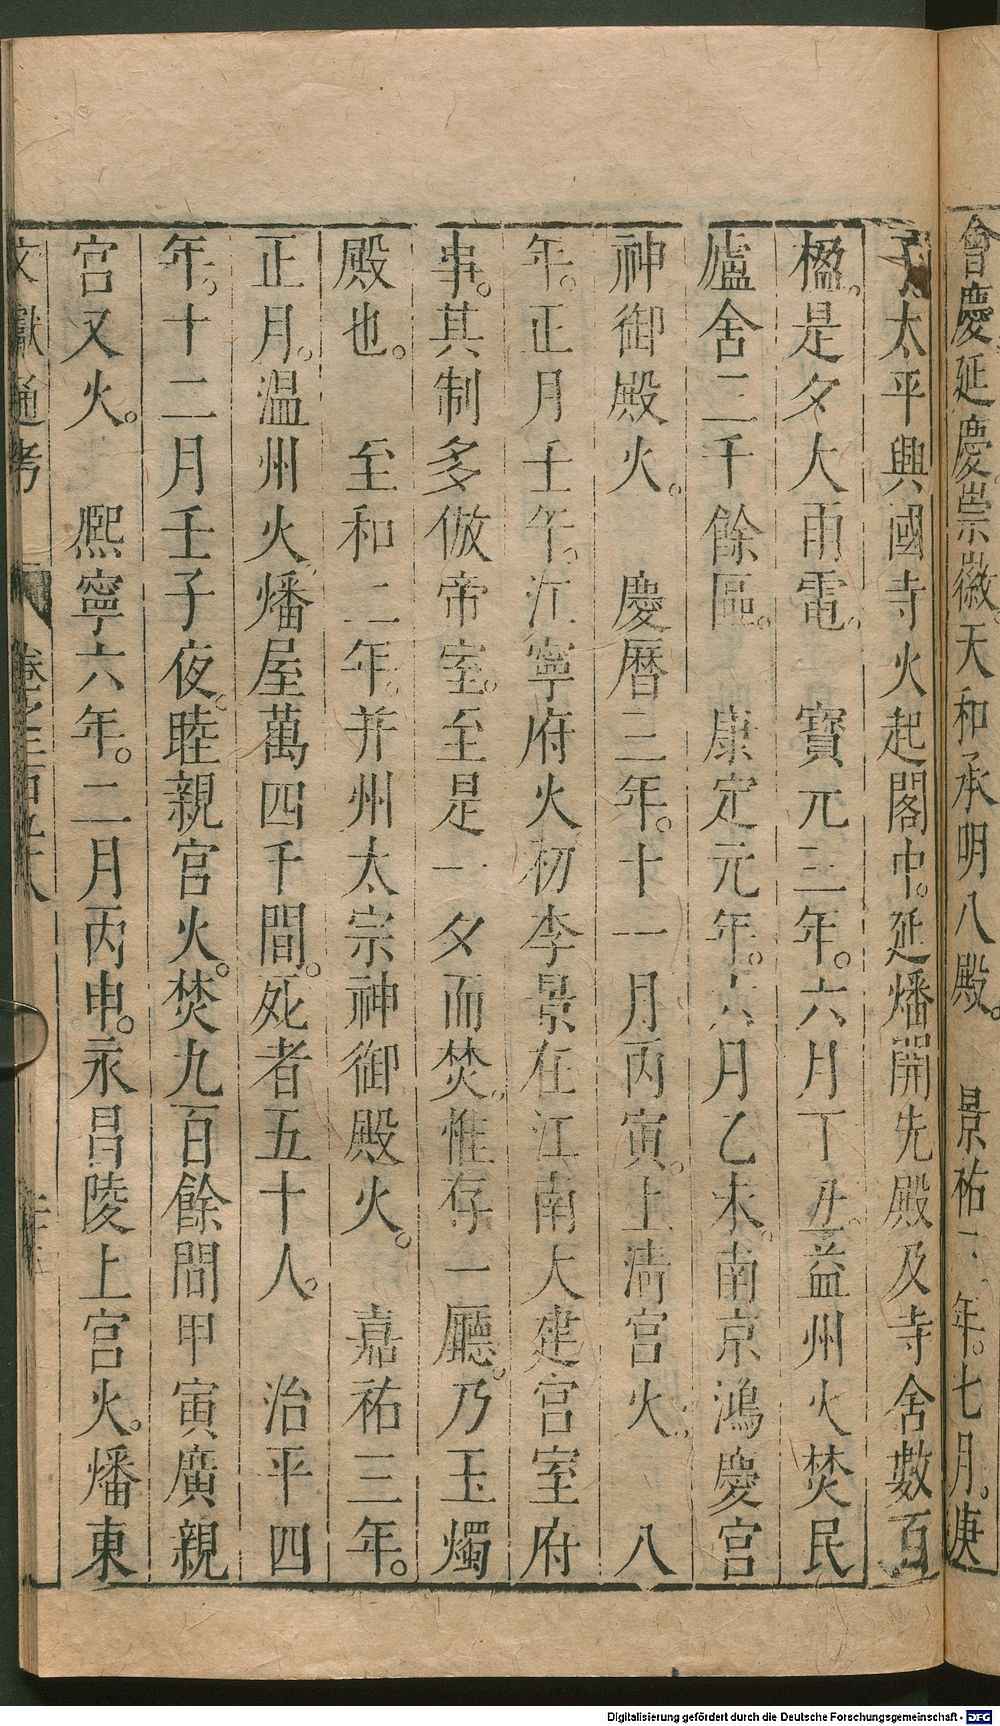 會慶延慶崇徽。天和承明八殿。　景祐二年。七月。庚
子太平興國寺火起閣中。延燔開先殿及寺舍數百
楹。是夕大雨電。　寶元三年。六月丁丑。益州火焚民
廬舍二千餘區。　康定元年。六月乙未。南京鴻慶宮
神御殿火。　慶曆三年。十一月丙寅。上淸宮火。　八
年。正月壬午。江寧府火初李景在江南大建宮室府
事。其制多倣帝室。至是一夕而焚。惟存一廳。乃玉燭
殿也。　至和二年。并州太宗神御殿火。　嘉祐三年。
正月。温州火燔屋萬四千間。死者五十人。　治平四
年。十二月壬子夜。睦親宮火。焚九百餘間甲寅廣親
宮又火。　熙寧六年。二月丙申。永昌陵上宮火。燔東
文獻通考
Digitalisierung gefördert durch die Deutsche Forschungsgemeinschaft - DFG